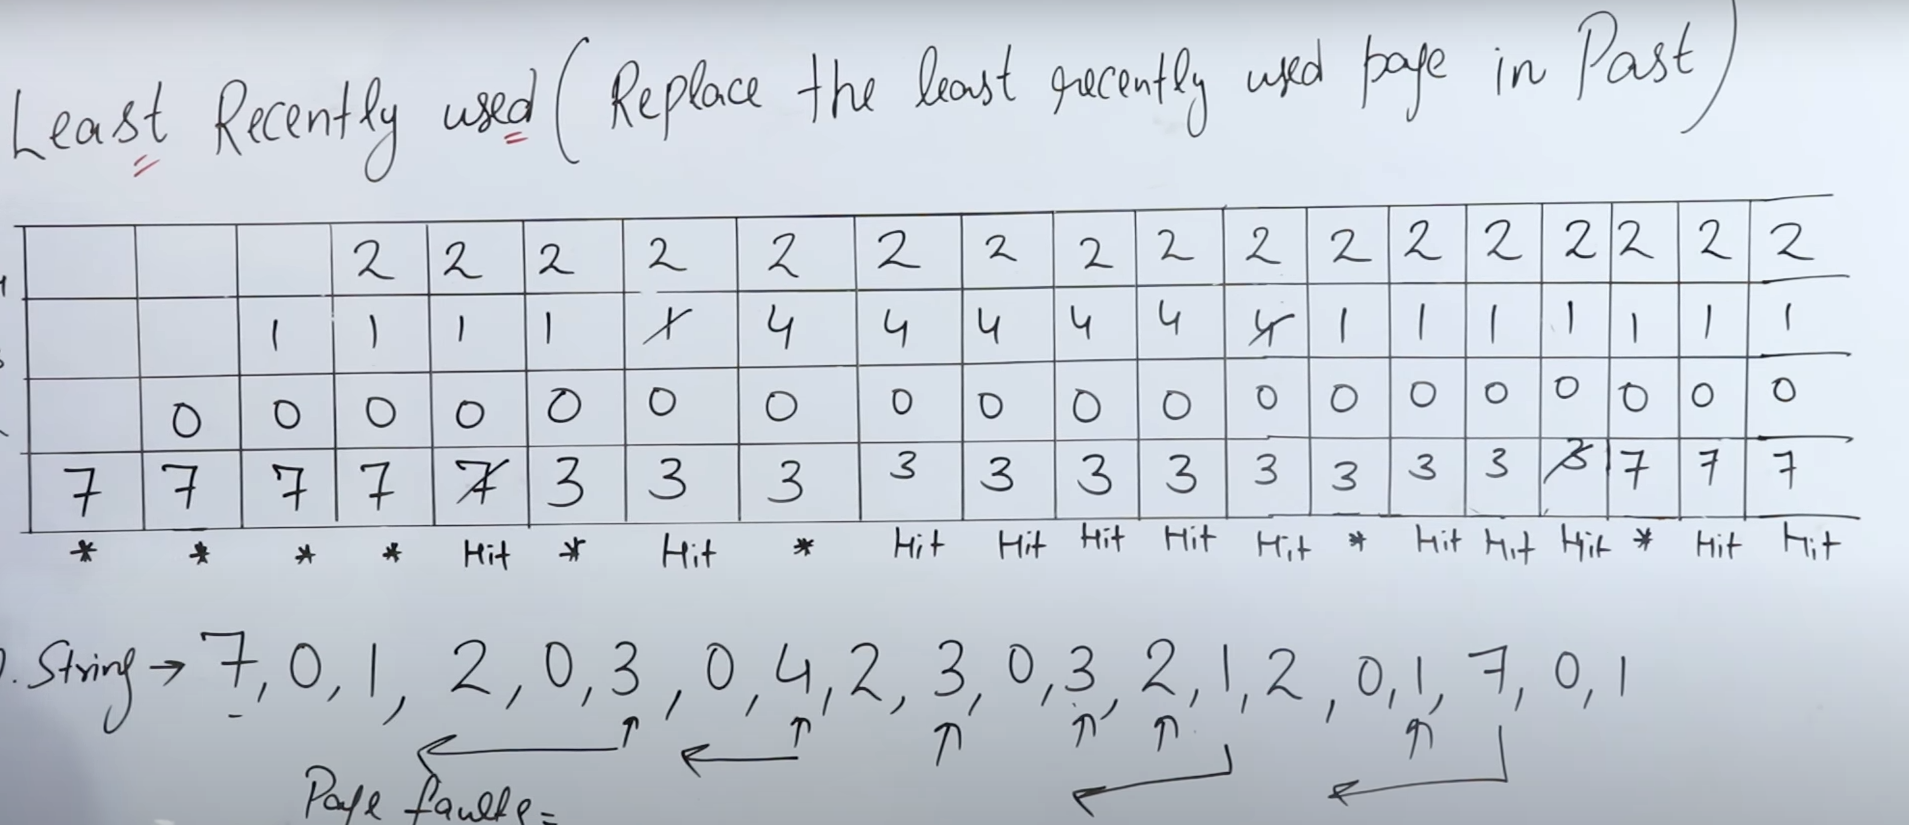 Least Recently used (Replace the least recently used page in Past)
2 2 2 2 2 2 2 2 2 2 2 2 2 2 2 2 2
1 1 1 1 1 4 4 4 4 4 4 1 1 1 1 1 1 1
0 0 0 0 0 0 0 0 0 0 0 0 0 0 0 0 0 0 0
7 7 7 7 7 3 3 3 3 3 3 3 3 3 3 3 3 7 7 7
* * * * Hit * Hit * Hit Hit Hit Hit Hit * Hit Hit Hit * Hit Hit
. String → 7, 0, 1, 2, 0, 3, 0, 4, 2, 3, 0, 3, 2, 1, 2, 0, 1, 7, 0, 1
Page faults =